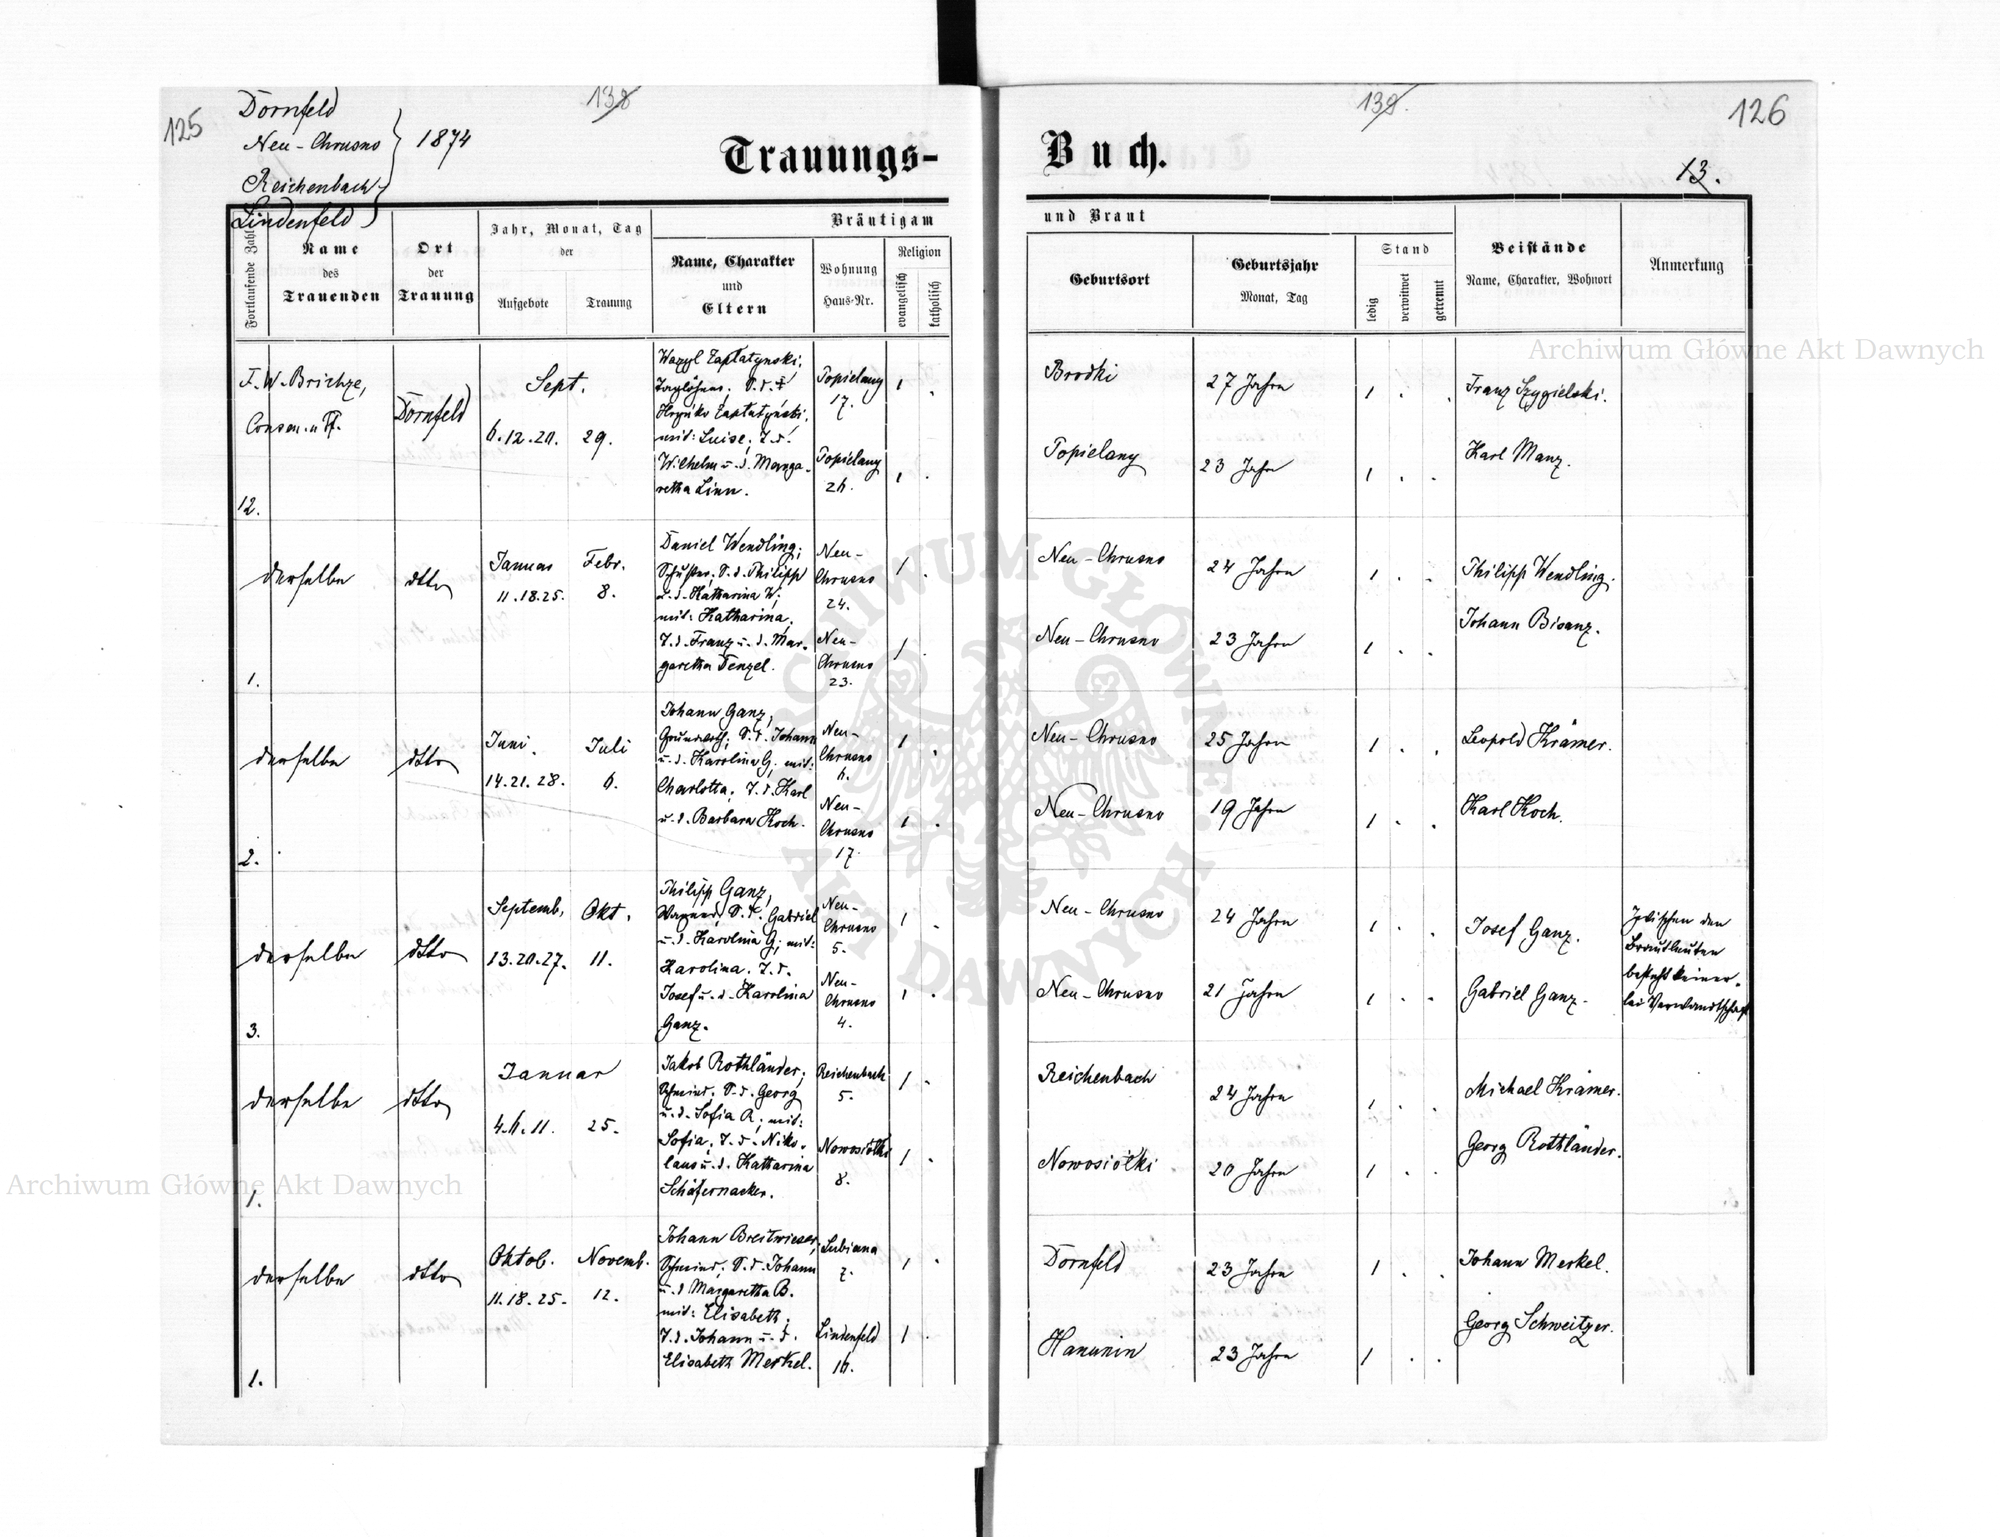 125
Dornfeld
Neu-Chrusno
Reichenbach
Lindenfeld
1874
138
139.
126
13.
Trauungs-
Buch.
Fortlaufende Zahl
Name
des
Trauenden
Ort
der
Trauung
Jahr, Monat, Tag
der
Aufgebote
Trauung
Bräutigam
und Braut
Name, Charakter
und
Eltern
Wohnung
Haus-Nr.
Religion
evangelisch
katholisch
Geburtsort
Geburtsjahr
Monat, Tag
Stand
ledig
verwitwet
getrennt
Beistände
Name, Charakter, Wohnort
Anmerkung
12.
Dornfeld
Sept.
6.12.20. 29.
mit: Luise, T.d.
Wilhelm u.d. Marga-
retha Linn.
Topielany
17.
Topielany
26.
1
1
Brodki
Topielany
27 Jahre
23 Jahre
1
1
Franz Szygielski.
Karl Manz.
1.
derselbe
dtto
Januar
11.18.25.
Febr.
8.
Daniel Wendling;
Schuster, S.d. Philipp
u.d. Katharina W;
mit: Katharina,
T.d. Franz u.d. Mar-
garetha Tenzel.
Neu-
Chrusno
24.
Neu-
Chrusno
23.
1
1
Neu-Chrusno
Neu-Chrusno
24 Jahre
23 Jahre
1
1
Philipp Wendling.
Johann Bisanz.
2.
derselbe
dtto
Juni
14.21.28.
Juli
6.
Johann Ganz,
Grundwirth; S.d. Johann
u.d. Karolina G; mit:
Charlotta, T.d. Karl
u.d. Barbara Koch.
Neu-
Chrusno
6.
Neu-
Chrusno
17.
1
1
Neu-Chrusno
Neu-Chrusno
25 Jahre
19 Jahre
1
1
Leopold Krämer.
Karl Koch.
3.
derselbe
dtto
Septemb.
13.20.27.
Okt.
11.
Philipp Ganz,
Wagner, S.d. Gabriel
u.d. Karolina G; mit:
Karolina, T.d.
Josef u.d. Karolina
Ganz.
Neu-
Chrusno
5.
Neu-
Chrusno
4.
1
1
Neu-Chrusno
Neu-Chrusno
24 Jahre
21 Jahre
1
1
Josef Ganz.
Gabriel Ganz.
Zwischen den
Brautleuten
besteht keiner-
lei Verwandtschaft
1.
derselbe
dtto
Januar
4.6.11. 25.
Jakob Rothländer;
Schmied, S.d. Georg
u.d. Sofia R; mit:
Sofia, T.d. Niko-
laus u.d. Katharina
Schäfernacker.
Reichenbach
5.
Nowosiółki
8.
1
1
Reichenbach
Nowosiółki
24 Jahre
20 Jahre
1
1
Michael Krämer.
Georg Rothländer.
1.
derselbe
dtto
Oktob.
11.18.25.
Novemb.
12.
Johann Breitwieser,
Schmied, S.d. Johann
u.d. Margaretha B.
mit: Elisabeth,
T.d. Johann u.d.
Elisabeth Merkel.
Lubiana
7.
Lindenfeld
16.
1
1
Dornfeld
Hanunin
23 Jahre
23 Jahre
1
1
Johann Merkel.
Georg Schweitzer.
Archiwum Główne Akt Dawnych
Archiwum Główne Akt Dawnych
ARCHIWUM GŁÓWNE
AKT DAWNYCH